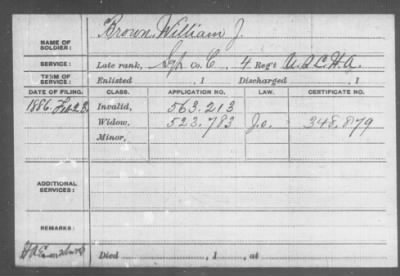 NAME OF SOLDIER: Brown William J.
SERVICE: Late rank, Co. C, 4 Reg't U.S.C.H.A.
TERM OF SERVICE: Enlisted , 1 Discharged , 1
DATE OF FILING. CLASS. APPLICATION NO. LAW. CERTIFICATE NO.
1886. Invalid, 563.213
Widow, 523.783 J.o. 348.879
Minor,
ADDITIONAL SERVICES:
REMARKS:
Died , 1 , at